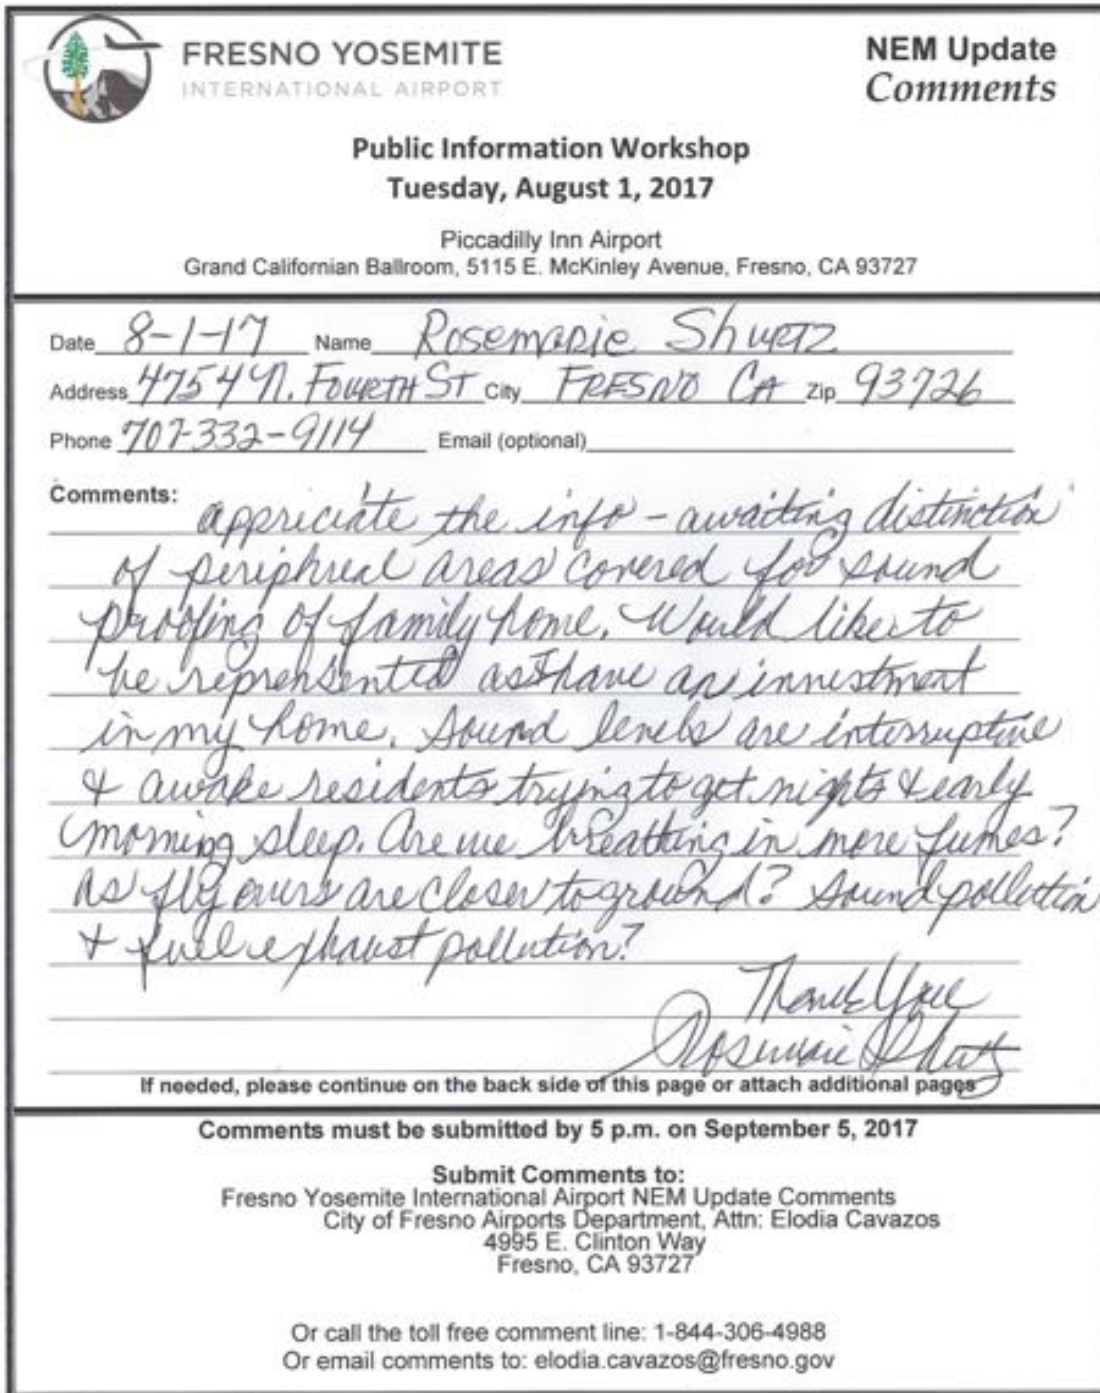 FRESNO YOSEMITE
INTERNATIONAL AIRPORT
NEM Update
Comments
Public Information Workshop
Tuesday, August 1, 2017
Piccadilly Inn Airport
Grand Californian Ballroom, 5115 E. McKinley Avenue, Fresno, CA 93727
Date 8-1-17 Name Rosemarie Shurtz
Address 4754 N. Fourth St City FRESNO CA Zip 93726
Phone 707-332-9114 Email (optional)
Comments:
appriciate the info - awaiting distinction
of periphreal areas covered for sound
proofing of family home. Would like to
be reprehsented as I have an investment
in my home. Sound levels are interruptive
& awake residents trying to get nights & early
morning sleep. Are we breathing in more fumes?
as fly overs are closer to ground? Sound pollution
& fuel exhaust pollution?
Thank You
Rosemarie Shurtz
If needed, please continue on the back side of this page or attach additional pages
Comments must be submitted by 5 p.m. on September 5, 2017
Submit Comments to:
Fresno Yosemite International Airport NEM Update Comments
City of Fresno Airports Department, Attn: Elodia Cavazos
4995 E. Clinton Way
Fresno, CA 93727
Or call the toll free comment line: 1-844-306-4988
Or email comments to: elodia.cavazos@fresno.gov